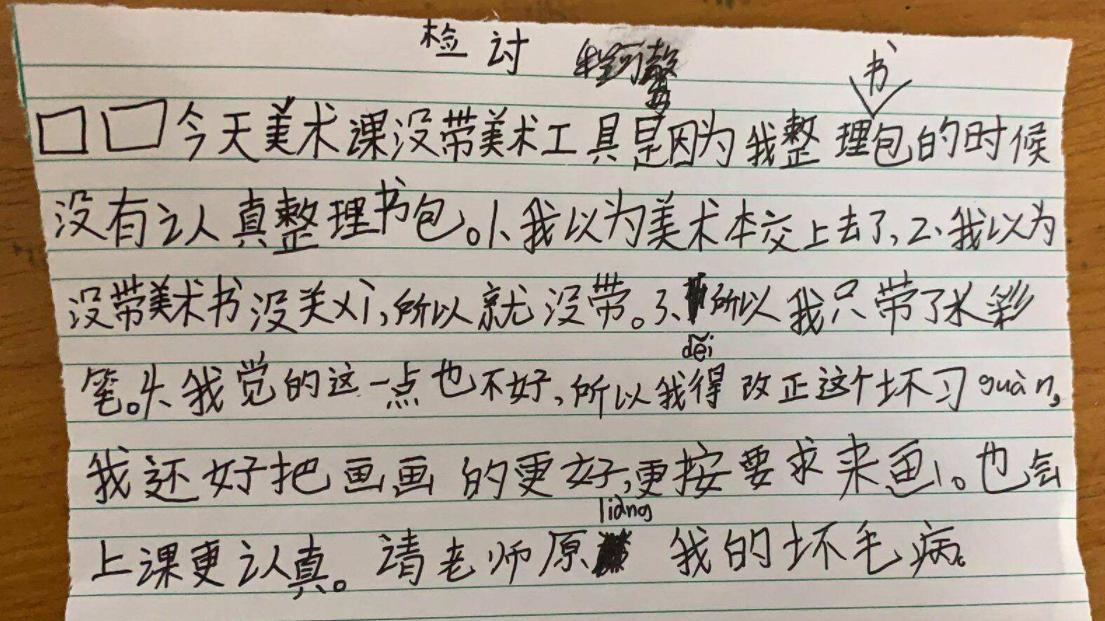 检讨
□□今天美术课没带美术工具是因为我整理书包的时候
没有认真整理书包。1、我以为美术本交上去了,2、我以为
没带美术书没关xì,所以就没带。3、所以我只带了水彩
笔。4、我觉的这一点也不好,所以我得(děi)改正这个坏习guàn,
我还好把画画的更好,更按要求来画。也会
上课更认真。请老师原liàng我的坏毛病。